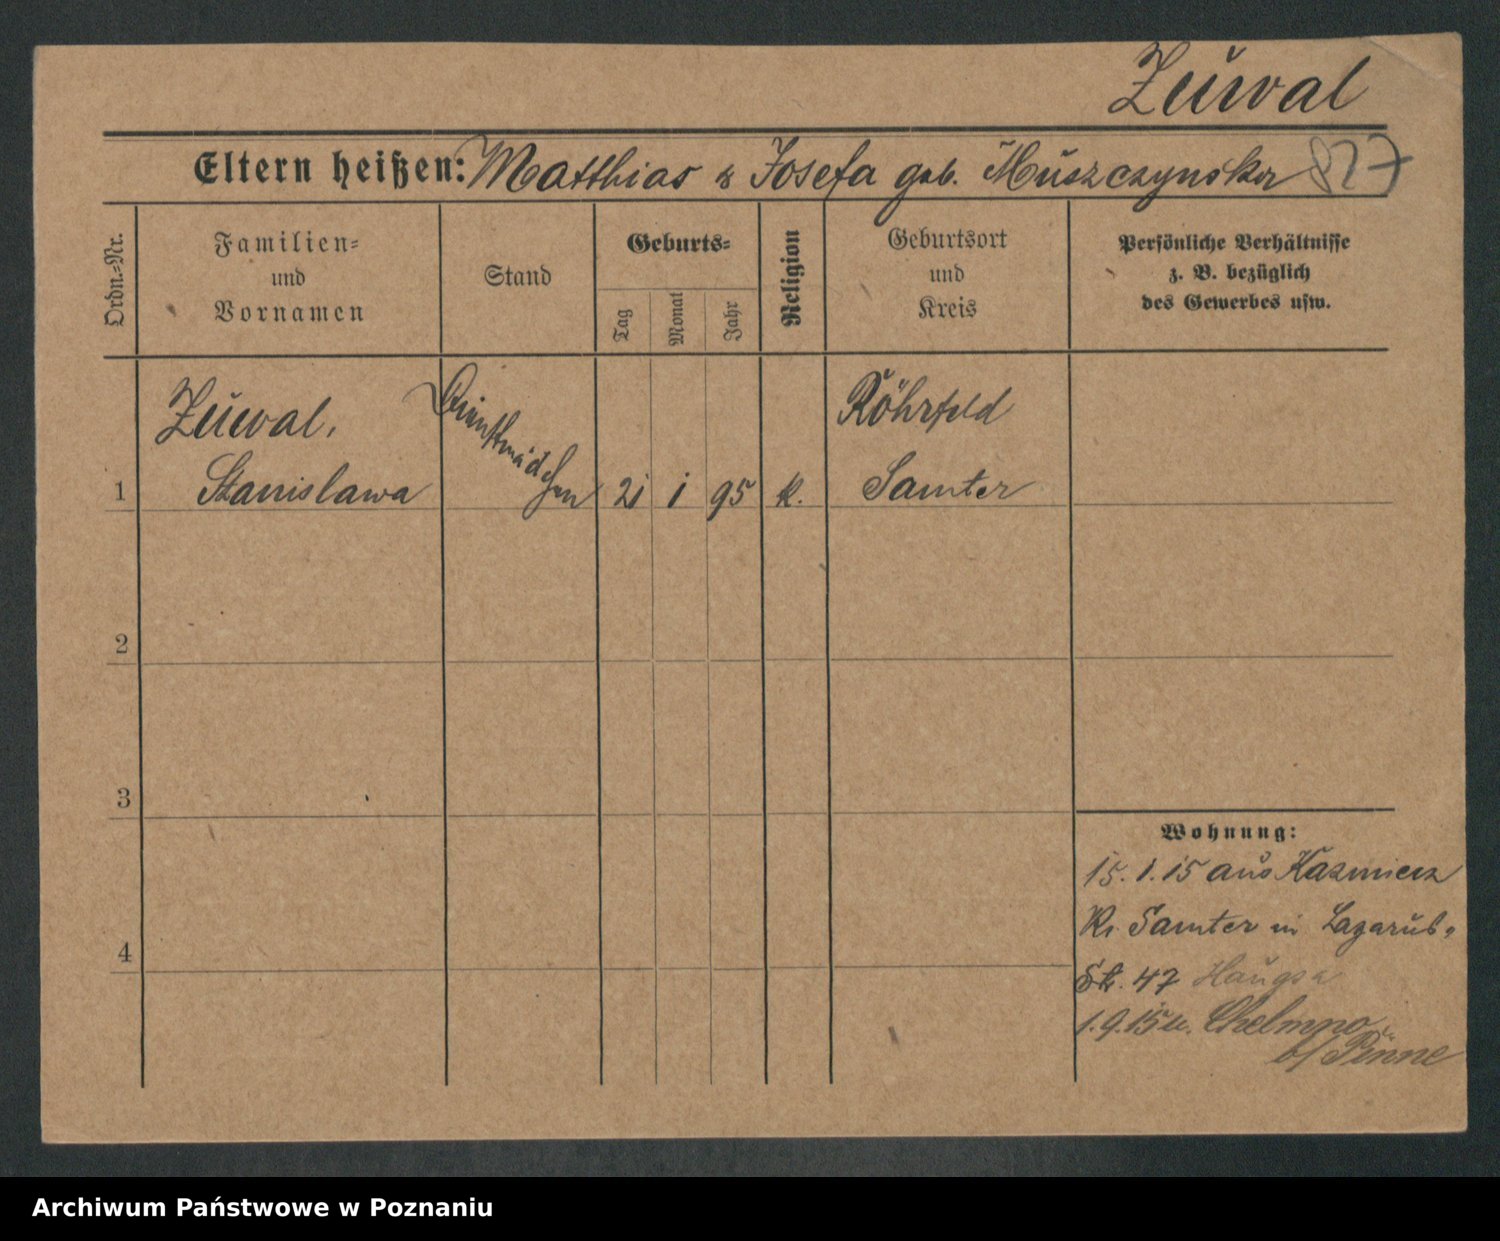 Zuwal
Eltern heißen: Matthias & Josefa geb. Muszczynska 827
Ordn.=Nr.
Familien=
und
Vornamen
Stand
Geburts=
Tag
Monat
Jahr
Religion
Geburtsort
und
Kreis
Persönliche Verhältnisse
z. B. bezüglich
des Gewerbes usw.
1
Zuwal,
Stanislawa
Dienstmädchen
21
1
95
k.
Röhrfeld
Samter
2
3
4
Wohnung:
15.1.15 aus Kazmierz
Kr. Samter in Lazarus-
Str. 47
1.9.15 n. Chelmno
b/ Pinne
Archiwum Państwowe w Poznaniu